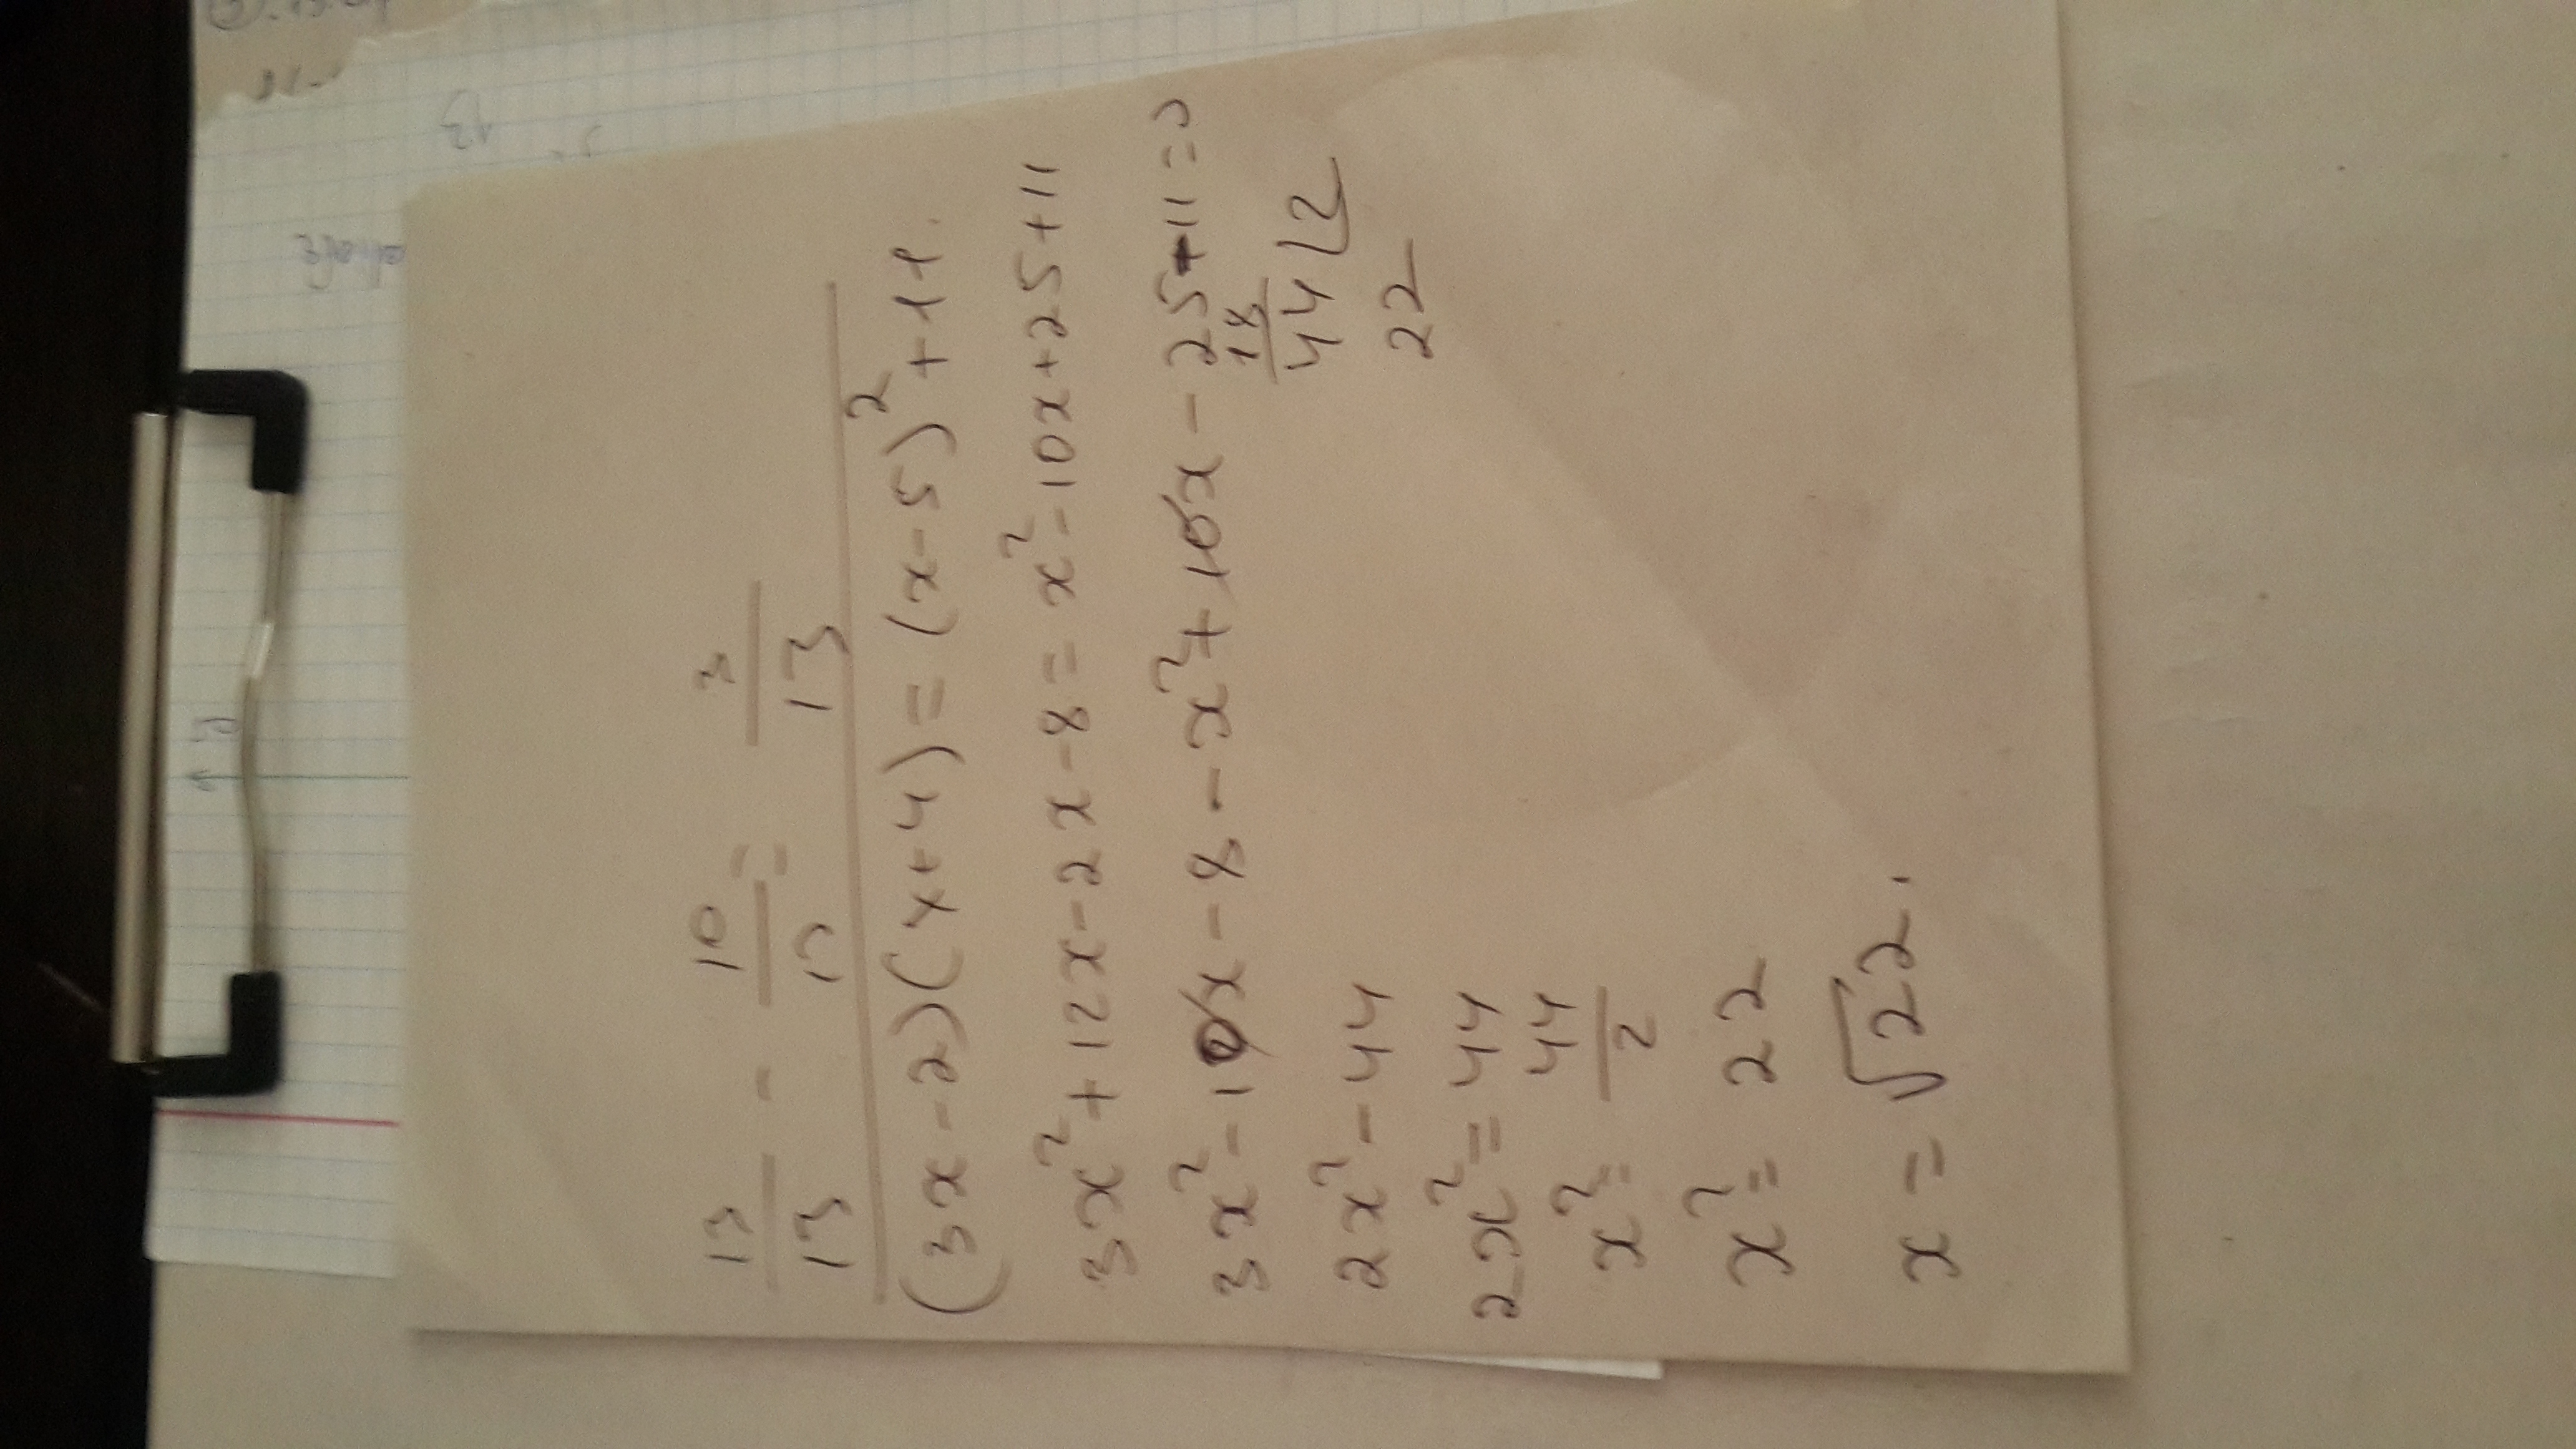 13/13 - 10/13 = 3/13
(3x-2)(x+4)=(x-5)²+11.
3x²+12x-2x-8=x²-10x+25+11
3x²-10x-8-x²+10x-25-11=0
18
44 2
22
2x²-44
2x²=44
x²=44/2
x²=22
x=√22.
13